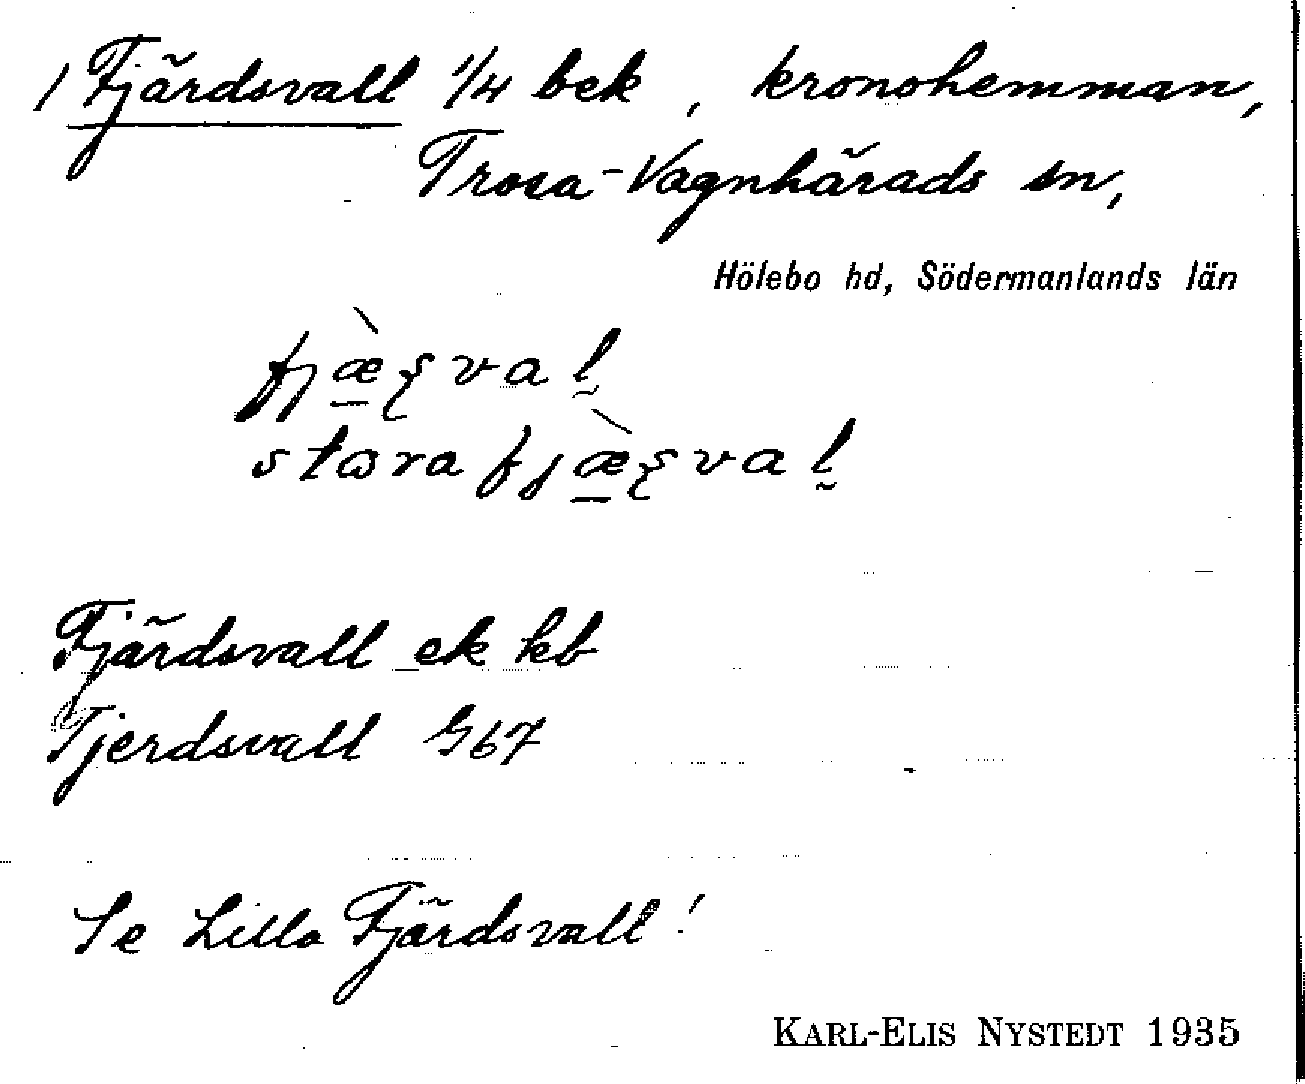 1 Fjärdsvall 1/4 bek, kronohemman,
Trosa-Vagnhärads sn,
Hölebo hd, Södermanlands län
fjæ̀ʂval̰
stɷra fjæ̀ʂval̰
Fjärdsvall ek kb
Fjerdsvall G67
Se Lilla Fjärdsvall!
KARL-ELIS NYSTEDT 1935